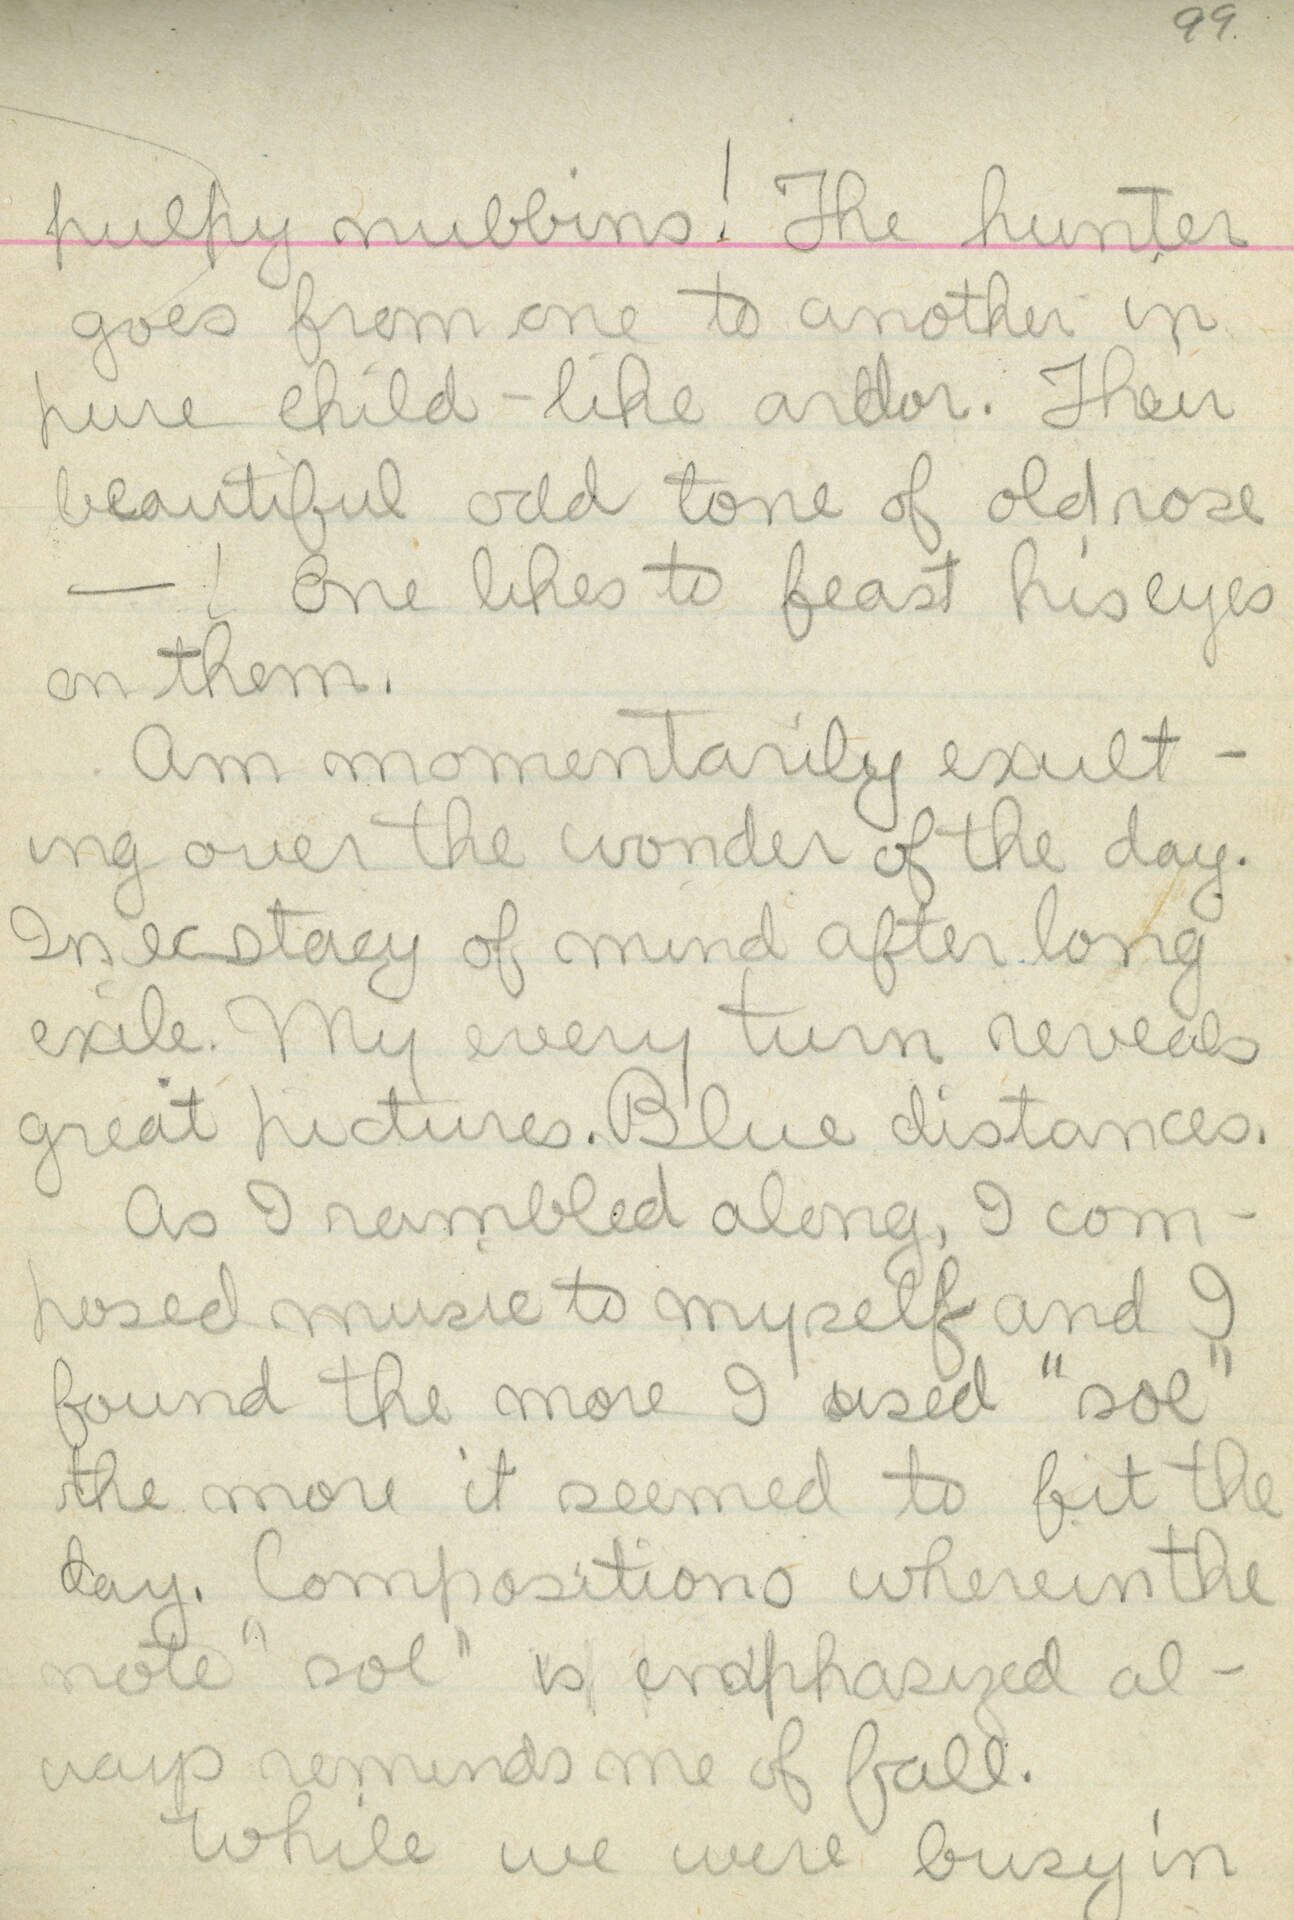 99.
pulpy nubbins! The hunter
goes from one to another in
pure child-like ardor. Their
beautiful odd tone of old rose
—! One likes to feast his eyes
on them.
Am momentarily exult-
ing over the wonder of the day.
In ecstacy of mind after long
exile. My every turn reveals
great pictures. Blue distances.
As I rambled along, I com-
posed music to myself and I
found the more I used "sol"
the more it seemed to fit the
day. Compositions wherein the
note "sol" is emphasized al-
ways reminds me of fall.
While we were busy in